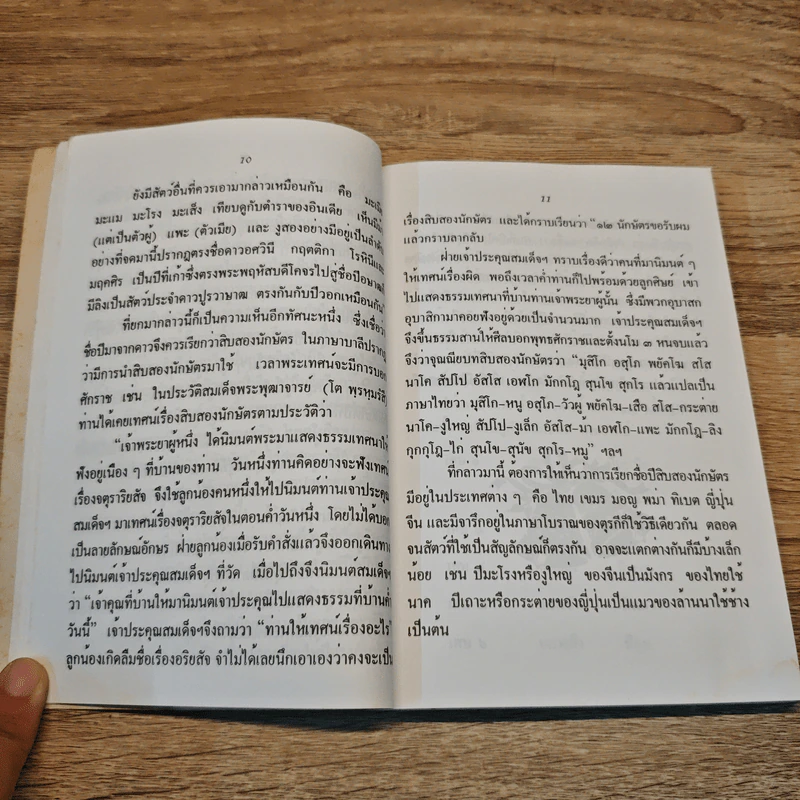 10
ยังมีสัตว์อื่นที่ควรเอามากล่าวเหมือนกัน คือ มะเมีย
มะแม มะโรง มะเส็ง เทียบดูกับตำราของอินเดีย เห็นมีม้า
(แต่เป็นตัวผู้) แพะ (ตัวเมีย) และ งูสองอย่างมีอยู่เป็นลำดับ
อย่างที่จดมานี้ปรากฏตรงชื่อดาวอศวินี กฤตติกา โรหินีและ
มฤคศิร เป็นปีที่เก้าซึ่งตรงพระพฤหัสบดีโคจรไปสู่ชื่อปีอาษาฒ
มีลิงเป็นสัตว์ประจำดาวปูรวาษาฒ ตรงกันกับปีวอกเหมือนกัน"
ที่ยกมากล่าวนี้ก็เป็นความเห็นอีกทัศนะหนึ่ง ซึ่งเชื่อว่า
ชื่อปีมาจากดาวจึงควรเรียกว่าสิบสองนักษัตร ในภาษาบาลีปรากฏ
ว่ามีการนำสิบสองนักษัตรมาใช้ เวลาพระเทศน์จะมีการบอก
ศักราช เช่น ในประวัติสมเด็จพระพุฒาจารย์ (โต พฺรหฺมรํสี)
ท่านได้เคยเทศน์เรื่องสิบสองนักษัตรตามประวัติว่า
"เจ้าพระยาผู้หนึ่ง ได้นิมนต์พระมาแสดงธรรมเทศนาให้
ฟังอยู่เนือง ๆ ที่บ้านของท่าน วันหนึ่งท่านคิดอย่างจะฟังเทศน์
เรื่องจตุราริยสัจ จึงใช้ลูกน้องคนหนึ่งให้ไปนิมนต์ท่านเจ้าประคุณ
สมเด็จฯ มาเทศน์เรื่องจตุราริยสัจในตอนค่ำวันหนึ่ง โดยไม่ได้บอก
เป็นลายลักษณ์อักษร ฝ่ายลูกน้องเมื่อรับคำสั่งแล้วจึงออกเดินทาง
ไปนิมนต์เจ้าประคุณสมเด็จฯ ที่วัด เมื่อไปถึงจึงนิมนต์สมเด็จฯ
ว่า "เจ้าคุณที่บ้านให้มานิมนต์เจ้าประคุณไปแสดงธรรมที่บ้านค่ำ
วันนี้" เจ้าประคุณสมเด็จฯจึงถามว่า "ท่านให้เทศน์เรื่องอะไร"
ลูกน้องเกิดลืมชื่อเรื่องอริยสัจ จำไม่ได้เลยนึกเอาเองว่าคงจะเป็น
11
เรื่องสิบสองนักษัตร และได้กราบเรียนว่า "๑๒ นักษัตรขอรับผม
แล้วกราบลากลับ
ฝ่ายเจ้าประคุณสมเด็จฯ ทราบเรื่องดีว่าคนที่มานิมนต์ ๆ
ให้เทศน์เรื่องผิด พอถึงเวลาค่ำท่านก็ไปพร้อมด้วยลูกศิษย์ เข้า
ไปแสดงธรรมเทศนาที่บ้านท่านเจ้าพระยาผู้นั้น ซึ่งมีพวกอุบาสก
อุบาสิกามาคอยฟังอยู่ด้วยเป็นจำนวนมาก เจ้าประคุณสมเด็จฯ
จึงขึ้นธรรมาสน์ให้ศีลบอกพุทธศักราชและตั้งนโม ๓ หนจบแล้ว
จึงว่าจุณณียบทสิบสองนักษัตรว่า "มุสิโก อสุโภ พยัคโฆ สโส
นาโค สัปโป อัสโส เอฬโก มักกโฏ สุนโข สุกโร แล้วแปลเป็น
ภาษาไทยว่า มุสิโก-หนู อสุโภ-วัวผู้ พยัคโฆ-เสือ สโส-กระต่าย
นาโค-งูใหญ่ สัปโป-งูเล็ก อัสโส-ม้า เอฬโก-แพะ มักกโฏ-ลิง
กุกกุโฏ-ไก่ สุนโข-สุนัข สุกโร-หมู" ฯลฯ
ที่กล่าวมานี้ ต้องการให้เห็นว่าการเรียกชื่อปีสิบสองนักษัตร
มีอยู่ในประเทศต่าง ๆ คือ ไทย เขมร มอญ พม่า ทิเบต ญี่ปุ่น
จีน และมีจารึกอยู่ในภาษาโบราณของตุรกีก็ใช้วิธีเดียวกัน ตลอด
จนสัตว์ที่ใช้เป็นสัญลักษณ์ก็ตรงกัน อาจจะแตกต่างกันก็มีบ้างเล็ก
น้อย เช่น ปีมะโรงหรืองูใหญ่ ของจีนเป็นมังกร ของไทยใช้
นาค ปีเถาะหรือกระต่ายของญี่ปุ่นเป็นแมวของล้านนาใช้ช้าง
เป็นต้น